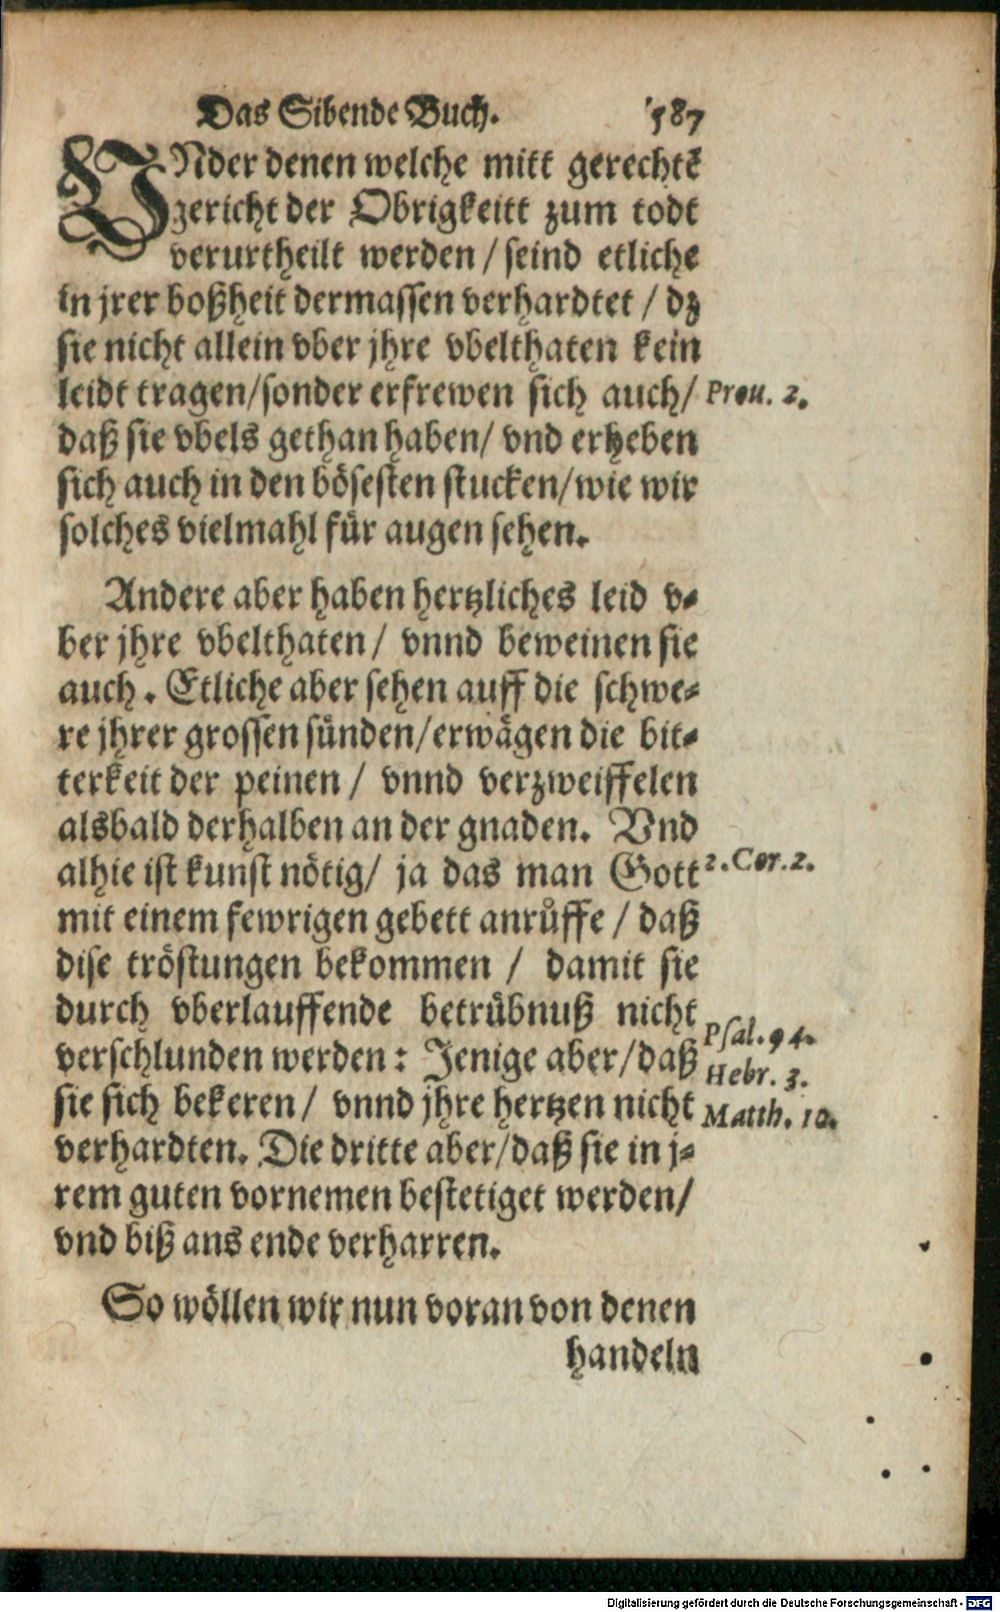 Das Sibende Buch. 587
VNder denen welche mitt gerechtē
gericht der Obrigkeitt zum todt
verurtheilt werden / seind etliche
in jrer boßheit dermassen verhardtet / dz
sie nicht allein vber jhre vbelthaten kein
leidt tragen/sonder erfrewen sich auch/ Prou. 2.
daß sie vbels gethan haben/ vnd erheben
sich auch in den bösesten stucken/wie wir
solches vielmahl für augen sehen.
Andere aber haben hertzliches leid v-
ber jhre vbelthaten/ vnnd beweinen sie
auch. Etliche aber sehen auff die schwe-
re jhrer grossen sünden/erwägen die bit-
terkeit der peinen / vnnd verzweiffelen
alsbald derhalben an der gnaden. Vnd
alhie ist kunst nötig/ ja das man Gott 2. Cor. 2.
mit einem fewrigen gebett anrůffe / daß
dise tröstungen bekommen / damit sie
durch vberlauffende betrübnuß nicht
verschlunden werden: Jenige aber/daß Psal. 94.
Hebr. 3.
sie sich bekeren/ vnnd jhre hertzen nicht Matth. 10.
verhardten. Die dritte aber/daß sie in j-
rem guten vornemen bestetiget werden/
vnd biß ans ende verharren.
So wöllen wir nun voran von denen
handeln
Digitalisierung gefördert durch die Deutsche Forschungsgemeinschaft - DFG